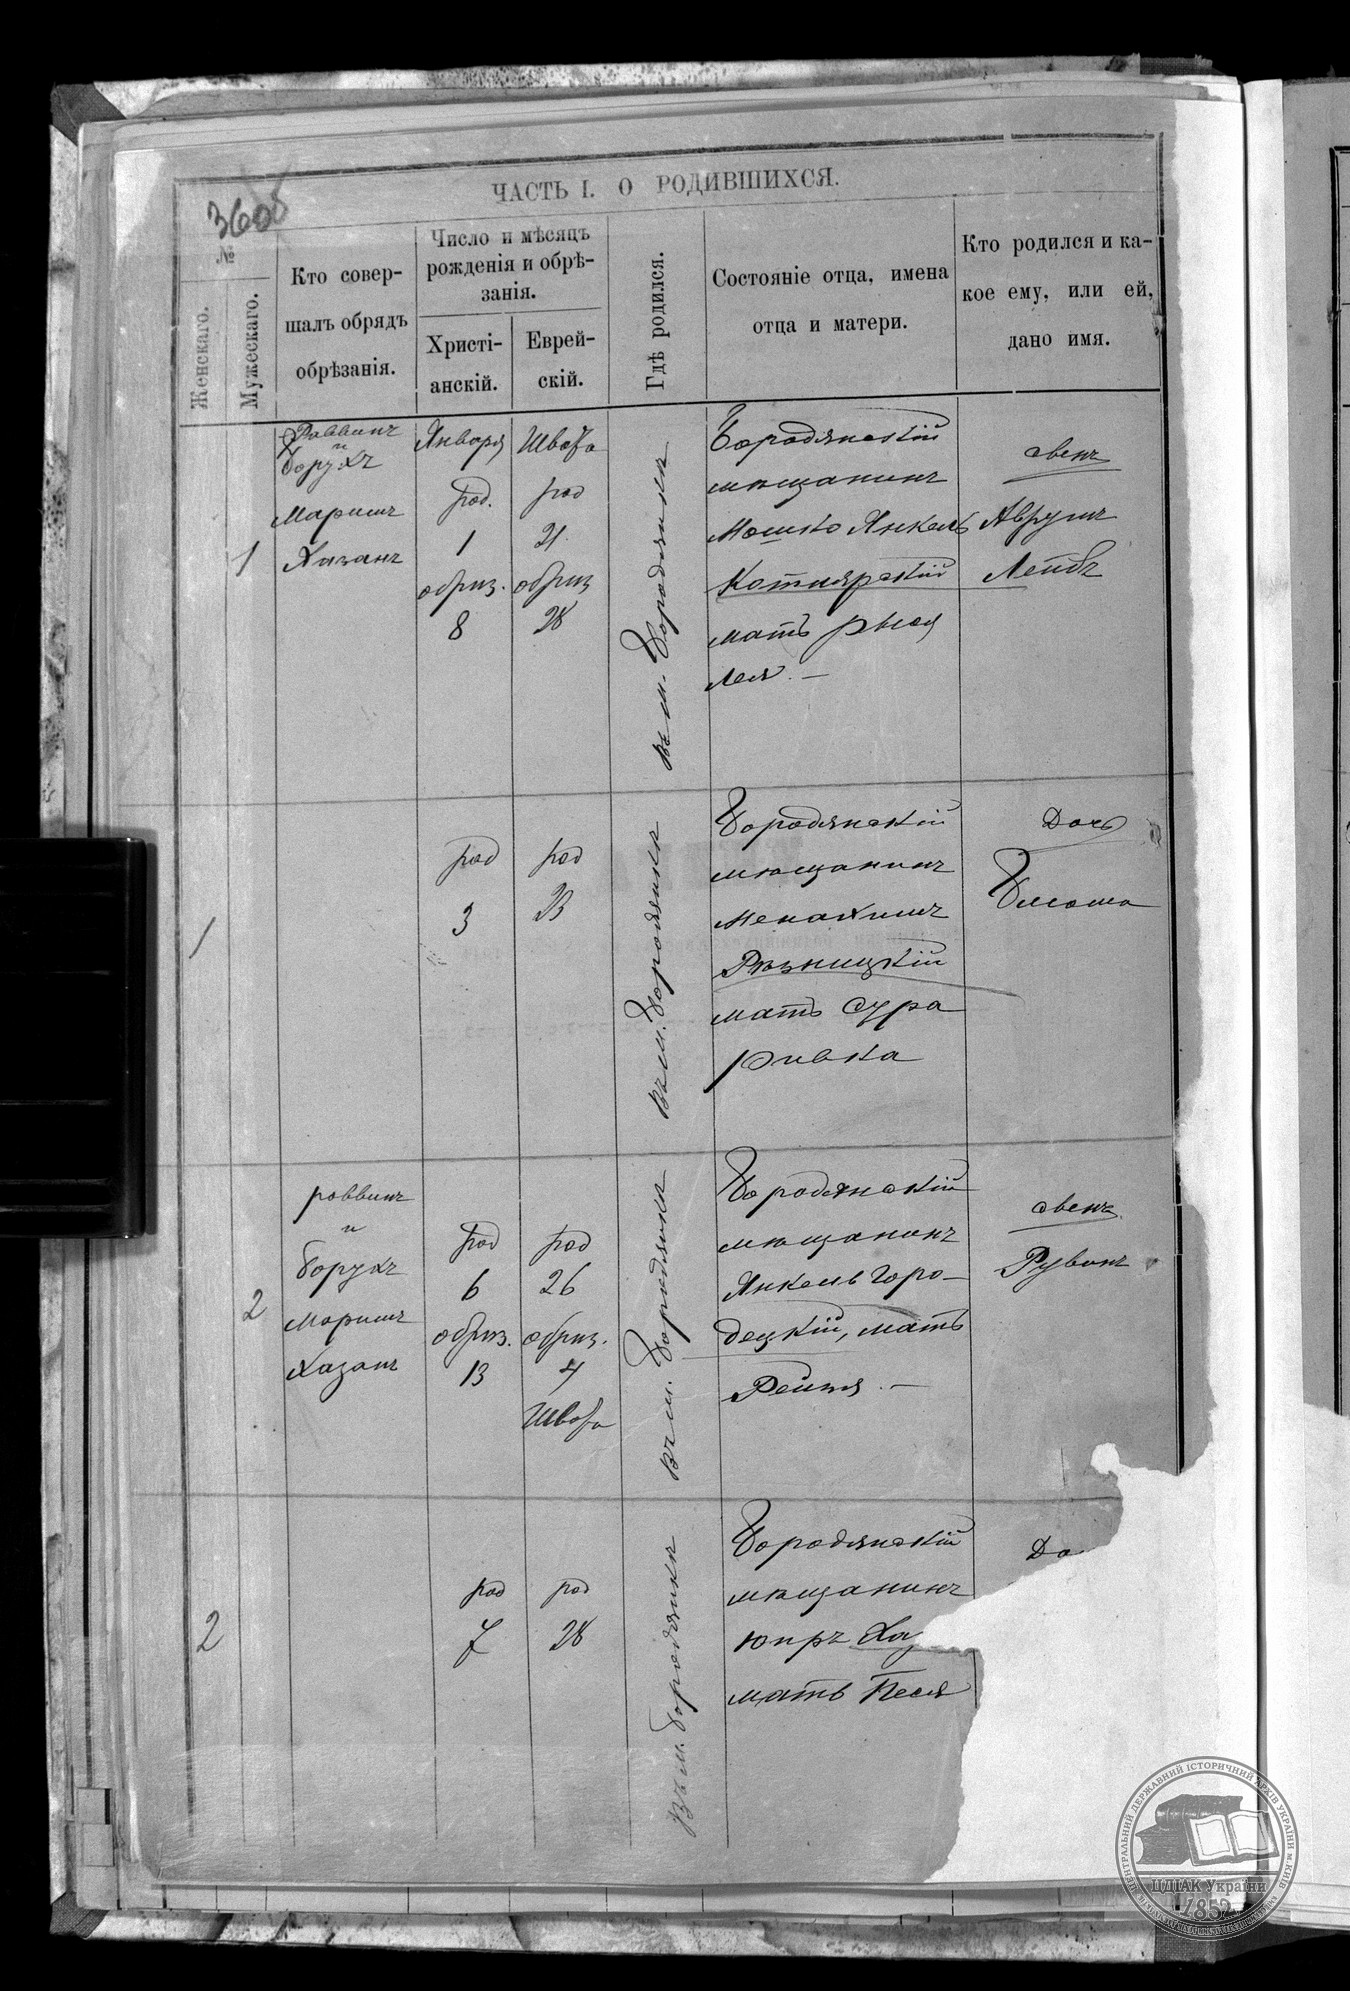 ЧАСТЬ I. О РОДИВШИХСЯ.
№
Женскаго.
Мужескаго.
Кто совер-
шалъ обрядъ
обрѣзанія.
Число и мѣсяцъ
рожденія и обрѣ-
занія.
Христі-
анскій.
Еврей-
скій.
Гдѣ родился.
Состояніе отца, имена
отца и матери.
Кто родился и ка-
кое ему, или ей,
дано имя.
1
Раввинъ
и
Борухъ
Маримъ
Хазанъ
Января
род.
1
обриз.
8
Швота
род
21
обриз
28
въ м. Бородянка
Бородянскій
мѣщанинъ
Мошко Янкель
Котлярскій
мать Рися
Лея. —
сынъ
Аврумъ
Лейбъ
1
род
3
род
23
въ м. Бородянка
Бородянскій
мѣщанинъ
Менахимъ
Рѣзницкій
мать Сура
Ривка
Дочь
Блюма
2
раввинъ
и
Борухъ
Маримъ
Хазанъ
род
6
обриз.
13
род
26
обриз.
4
Швота
въ м. Бородянка
Бородянскій
мѣщанинъ
Янкель Горо-
децкій, мать
Рейзя. —
сынъ
Рувинъ
2
род
7
род
28
въ м. Бородянка
Бородянскій
мѣщанинъ
Юкръ Ха
мать Песя
До
ЦДІАК України
1852